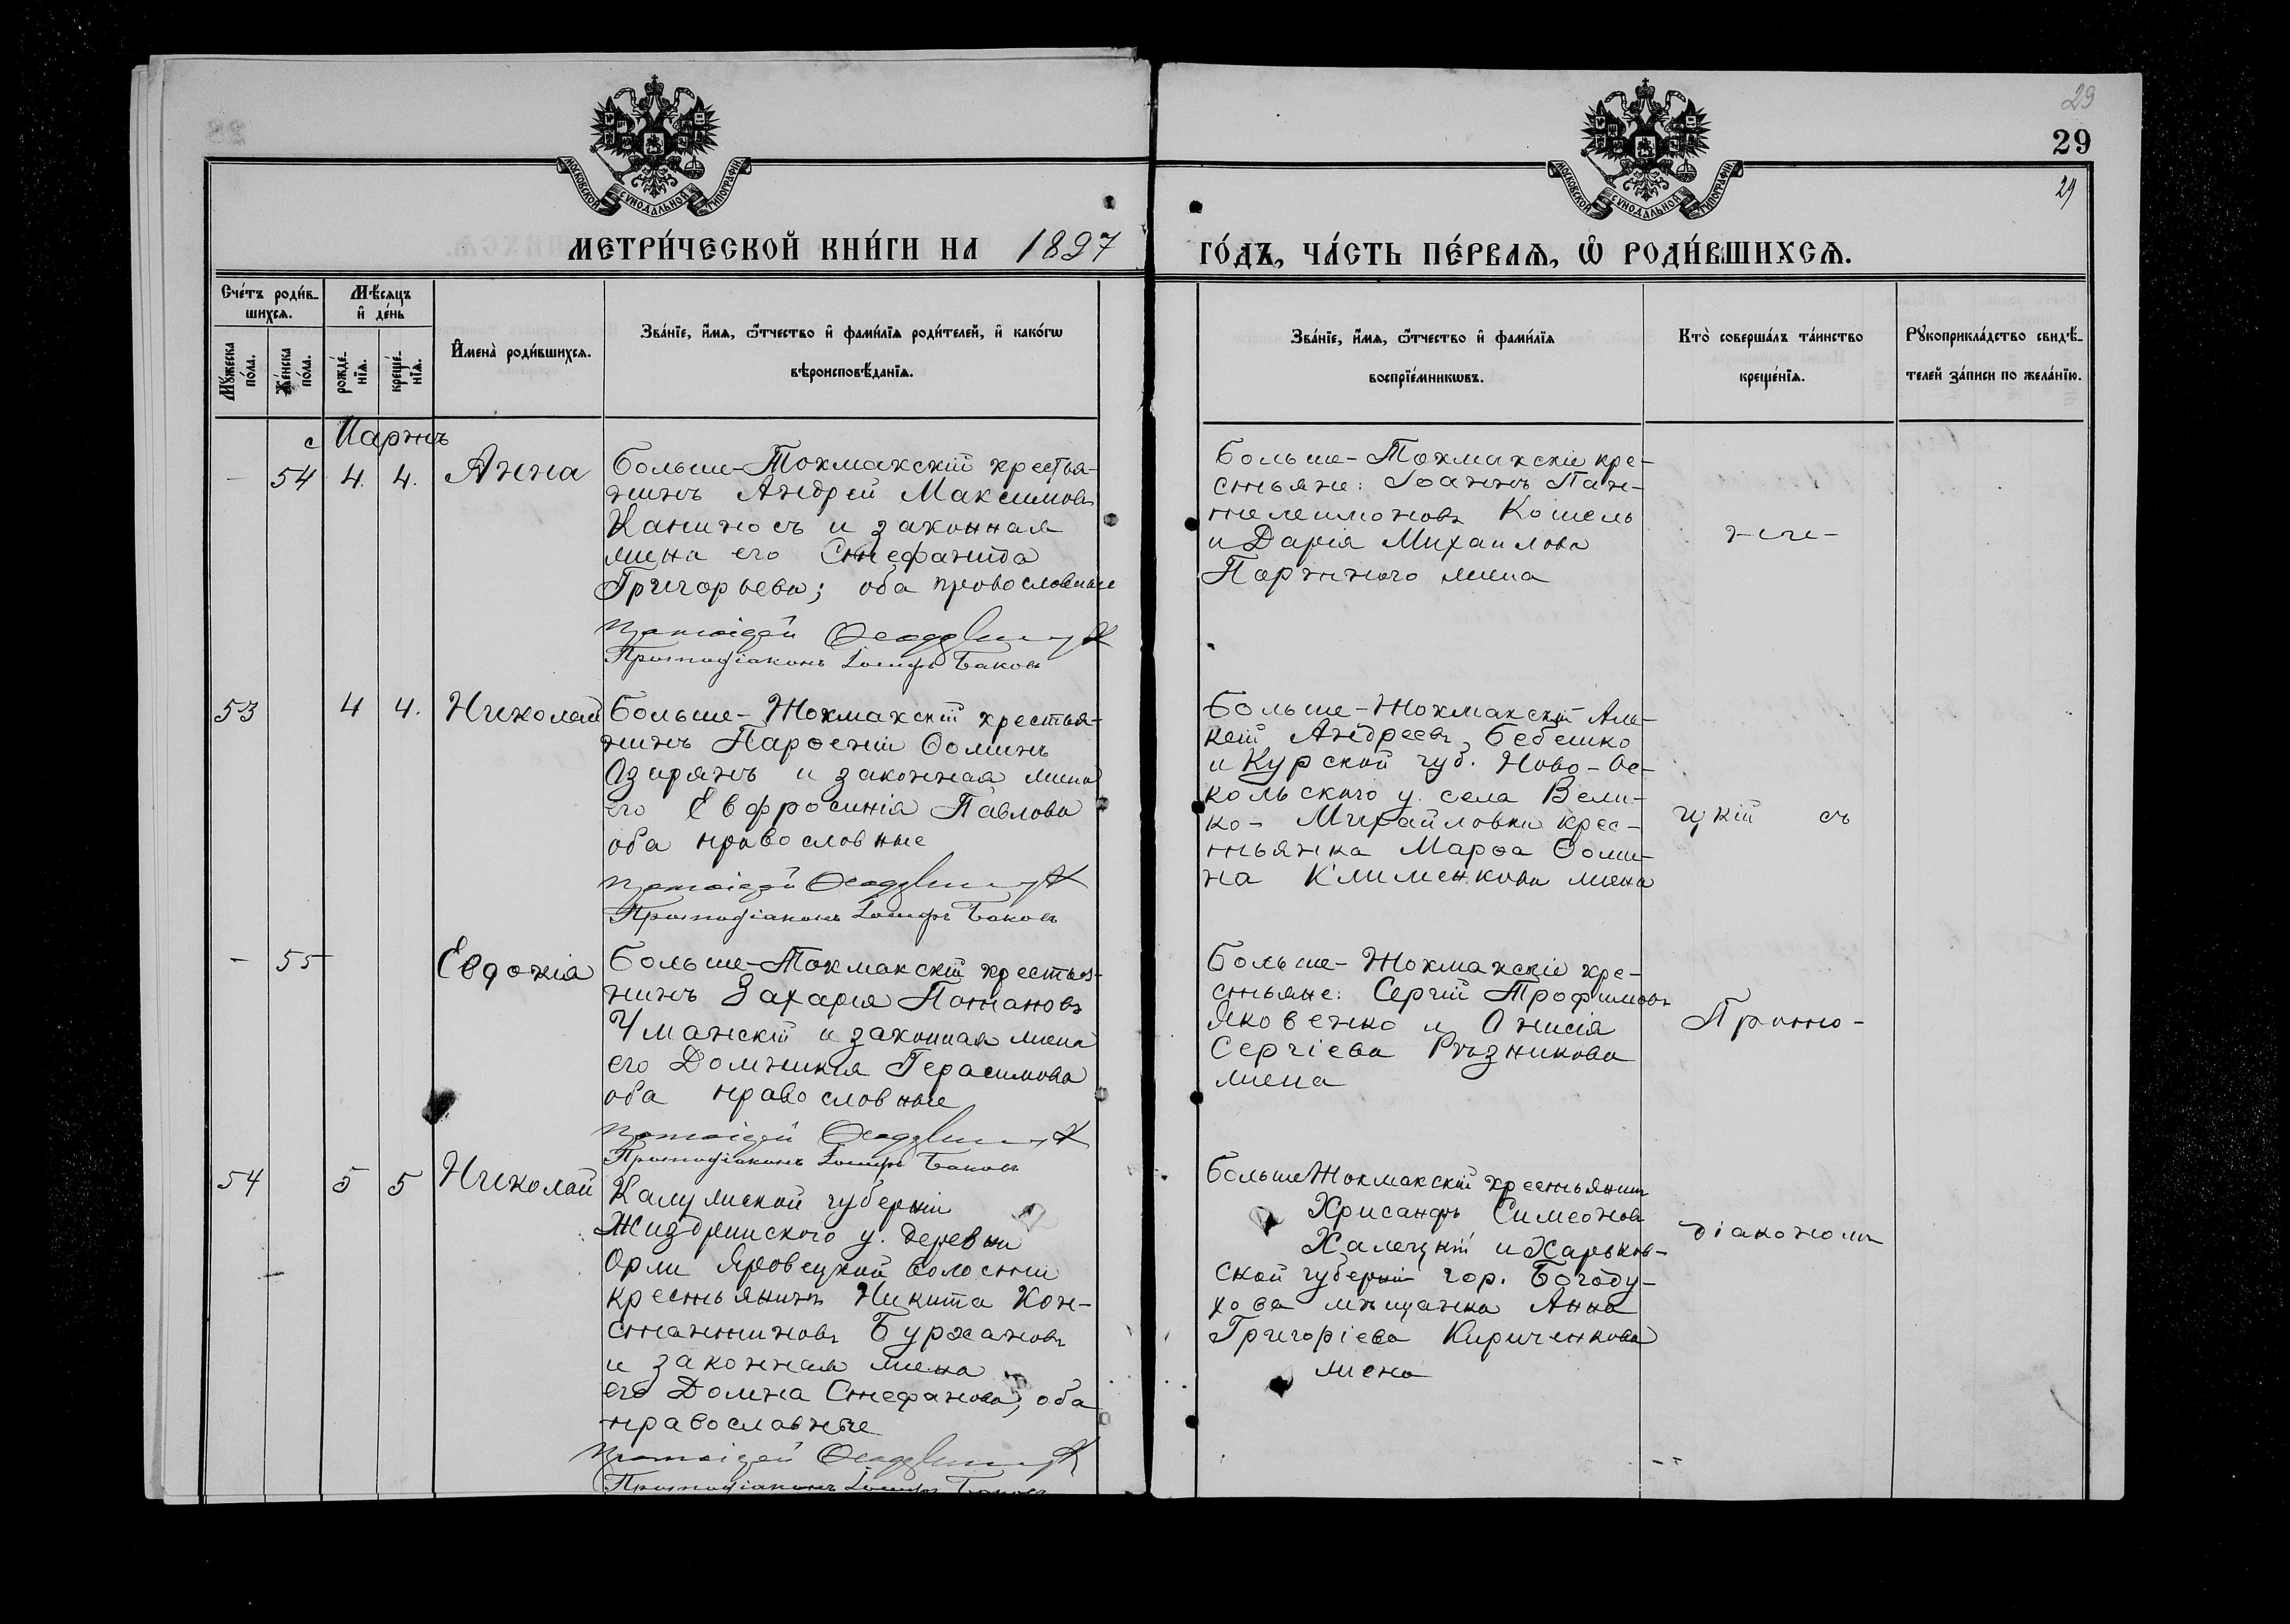 29
29
МОСКОВСКОЙ СѴНОДАЛЬНОЙ ТИПОГРАФІИ
МОСКОВСКОЙ СѴНОДАЛЬНОЙ ТИПОГРАФІИ
29
МЕТРИ́ЧЕСКОЙ КНИ́ГИ НА 1897
ГО́ДЪ, ЧА́СТЬ ПЕ́РВАѦ, Ѡ҆ РОДИ́ВШИХСѦ.
Сче́тъ роди́в-
шихсѧ.
Мѣ́сяцъ
и҆ де́нь
Мꙋ́жеска
по́ла.
Же́нска
по́ла.
рожде́-
нїѧ.
креще́-
нїѧ.
И҆мена̀ роди́вшихсѧ.
Зва́нїе, и҆́мѧ, ѻ҆́тчество и҆ фами́лїѧ роди́телей, и҆ како́гѡ
вѣроисповѣ́данїѧ.
Зва́нїе, и҆́мѧ, ѻ҆́тчество и҆ фами́лїѧ
воспрїе́мникѡвъ.
Кто̀ соверша́лъ та́инство
креще́нїѧ.
Рꙋкоприкла́дство свидѣ́-
телей за́писи по жела́нїю.
Мартъ
— 54 4. 4. Анна
Больше-Токмакскій крестья-
нинъ Андрей Максимовъ
и законная
жена его Стефанида
Григорьева; оба православные
Протоіерей
Протодіаконъ Іосифъ Баковъ
Больше-Токмакскіе кре-
стьяне: Іоаннъ Пан-
телеимоновъ Кошель
и Дарія Михаилова
жена
53 4 4. Николай
Больше-Токмакскій крестья-
нинъ Парѳеній Ѳоминъ
Озирянъ и законная жена
его Евфросинія Павлова
оба православные
Протоіерей
Протодіаконъ Іосифъ Баковъ
Больше-Токмакскій Але-
кѣй Андреевъ Бебешко
и Курской губ. Ново-Ос-
кольскаго у. села Вели-
ко-Михайловки крес-
тьянка Марѳа Ѳоми-
на Клименкова жена
цкій съ
— 55 Евдокія
Больше-Токмакскій крестья-
нинъ Захарія Потаповъ
Уманскій и законная жена
его Домникія Герасимова
оба православные
Протоіерей
Протодіаконъ Іосифъ Баковъ
Больше-Токмакскіе кре-
стьяне: Сергій Трофимовъ
Яковенко и Анисія
Сергіева Рѣзникова
жена
Прото-
54 5 5 Николай
Калужской губерніи
Жиздринскаго у. деревни
Орли Яровецкой волости
крестьянинъ Никита Кон-
стантиновъ Бурхановъ
и законная жена
его Домна Стефанова, оба
православные
Протоіерей
Протодіаконъ Іосифъ Баковъ
Больше Токмакскій крестьянинъ
Хрисанфъ Симеоновъ
Халецкій и Харьков-
ской губерніи гор. Богоду-
хова мѣщанка Анна
Григоріева Кириченкова
жена
діакономъ